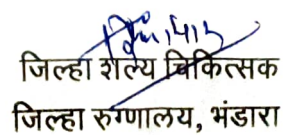 जिल्हा शल्य चिकित्सक
जिल्हा रुग्णालय, भंडारा